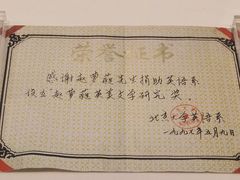 荣誉证书
感谢赵萝蕤先生捐助英语系
设立“赵萝蕤英美文学研究奖”
北京大学英语系
一九九七年五月九日